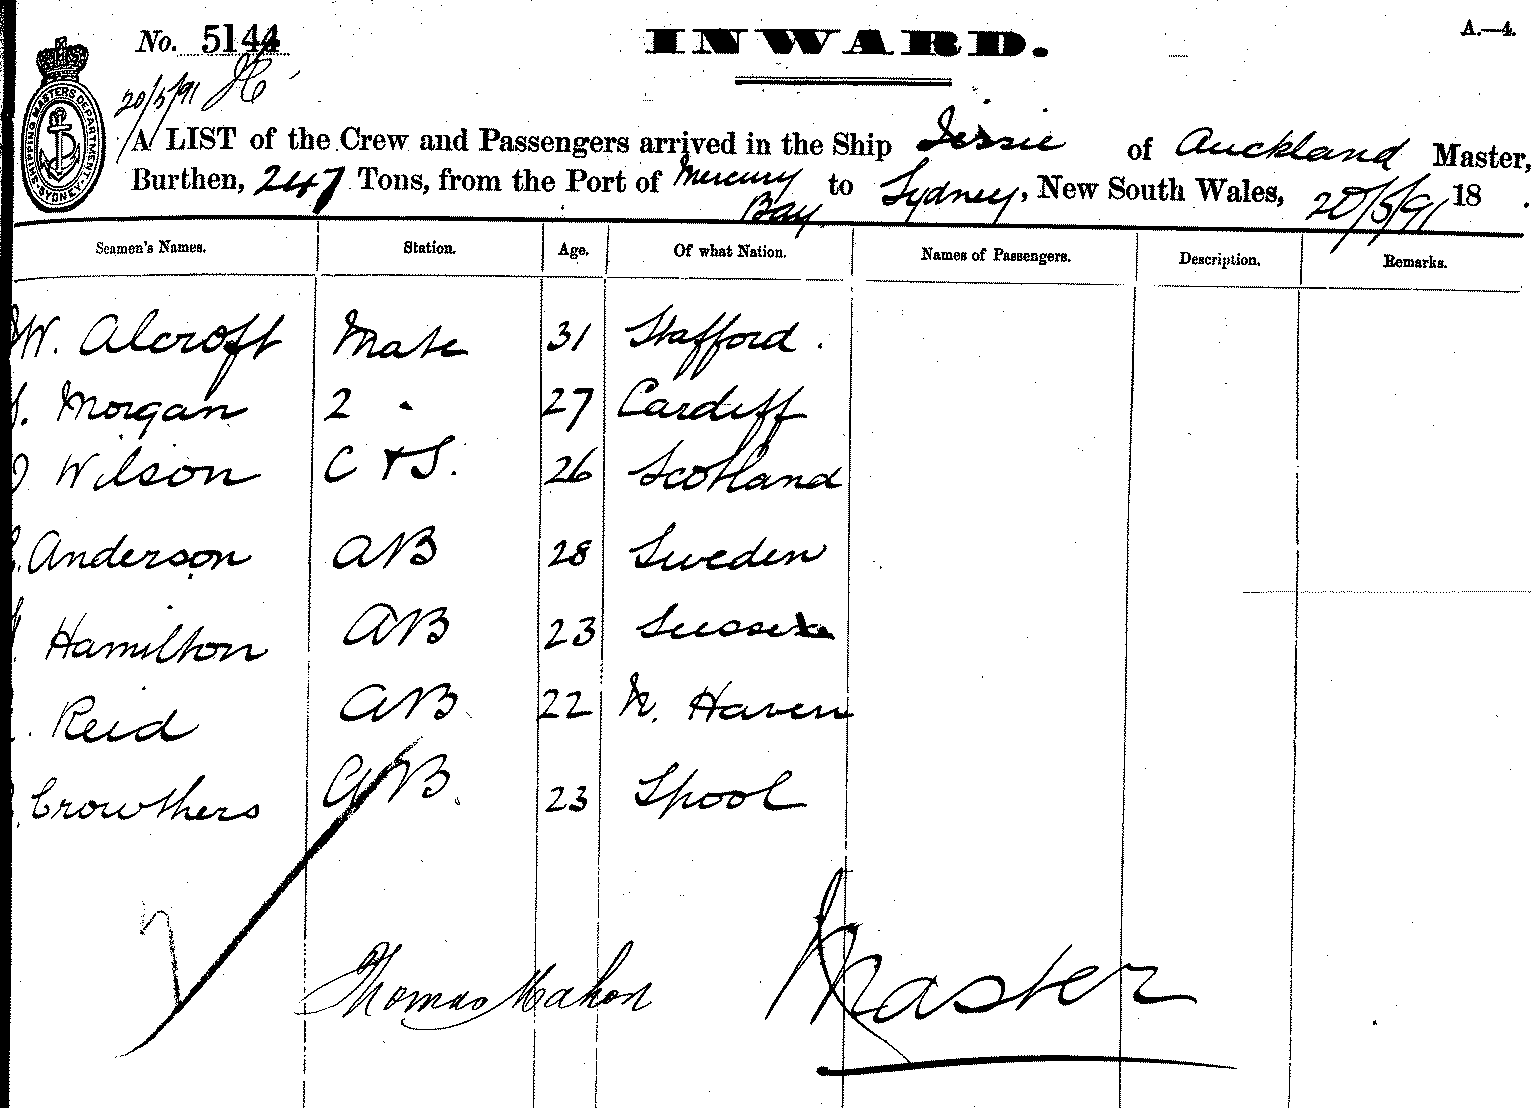 No. 5144
INWARD.
A.—4.
20/5/91
SHIPPING MASTERS DEPARTMENT
SYDNEY
A LIST of the Crew and Passengers arrived in the Ship Jessie of Auckland Master,
Burthen, 247 Tons, from the Port of Mercury Bay to Sydney, New South Wales, 20/5/91 18 .
Seamen's Names. Station. Age. Of what Nation. Names of Passengers. Description. Remarks.
W. Alcroft Mate 31 Stafford.
Morgan 2 " 27 Cardiff
Wilson C & S. 26 Scotland
Anderson AB 28 Sweden
Hamilton AB 23 Sussex
Reid AB 22 N. Haven
Crowthers AB. 23 Lpool
7
Thomas Mahon Master